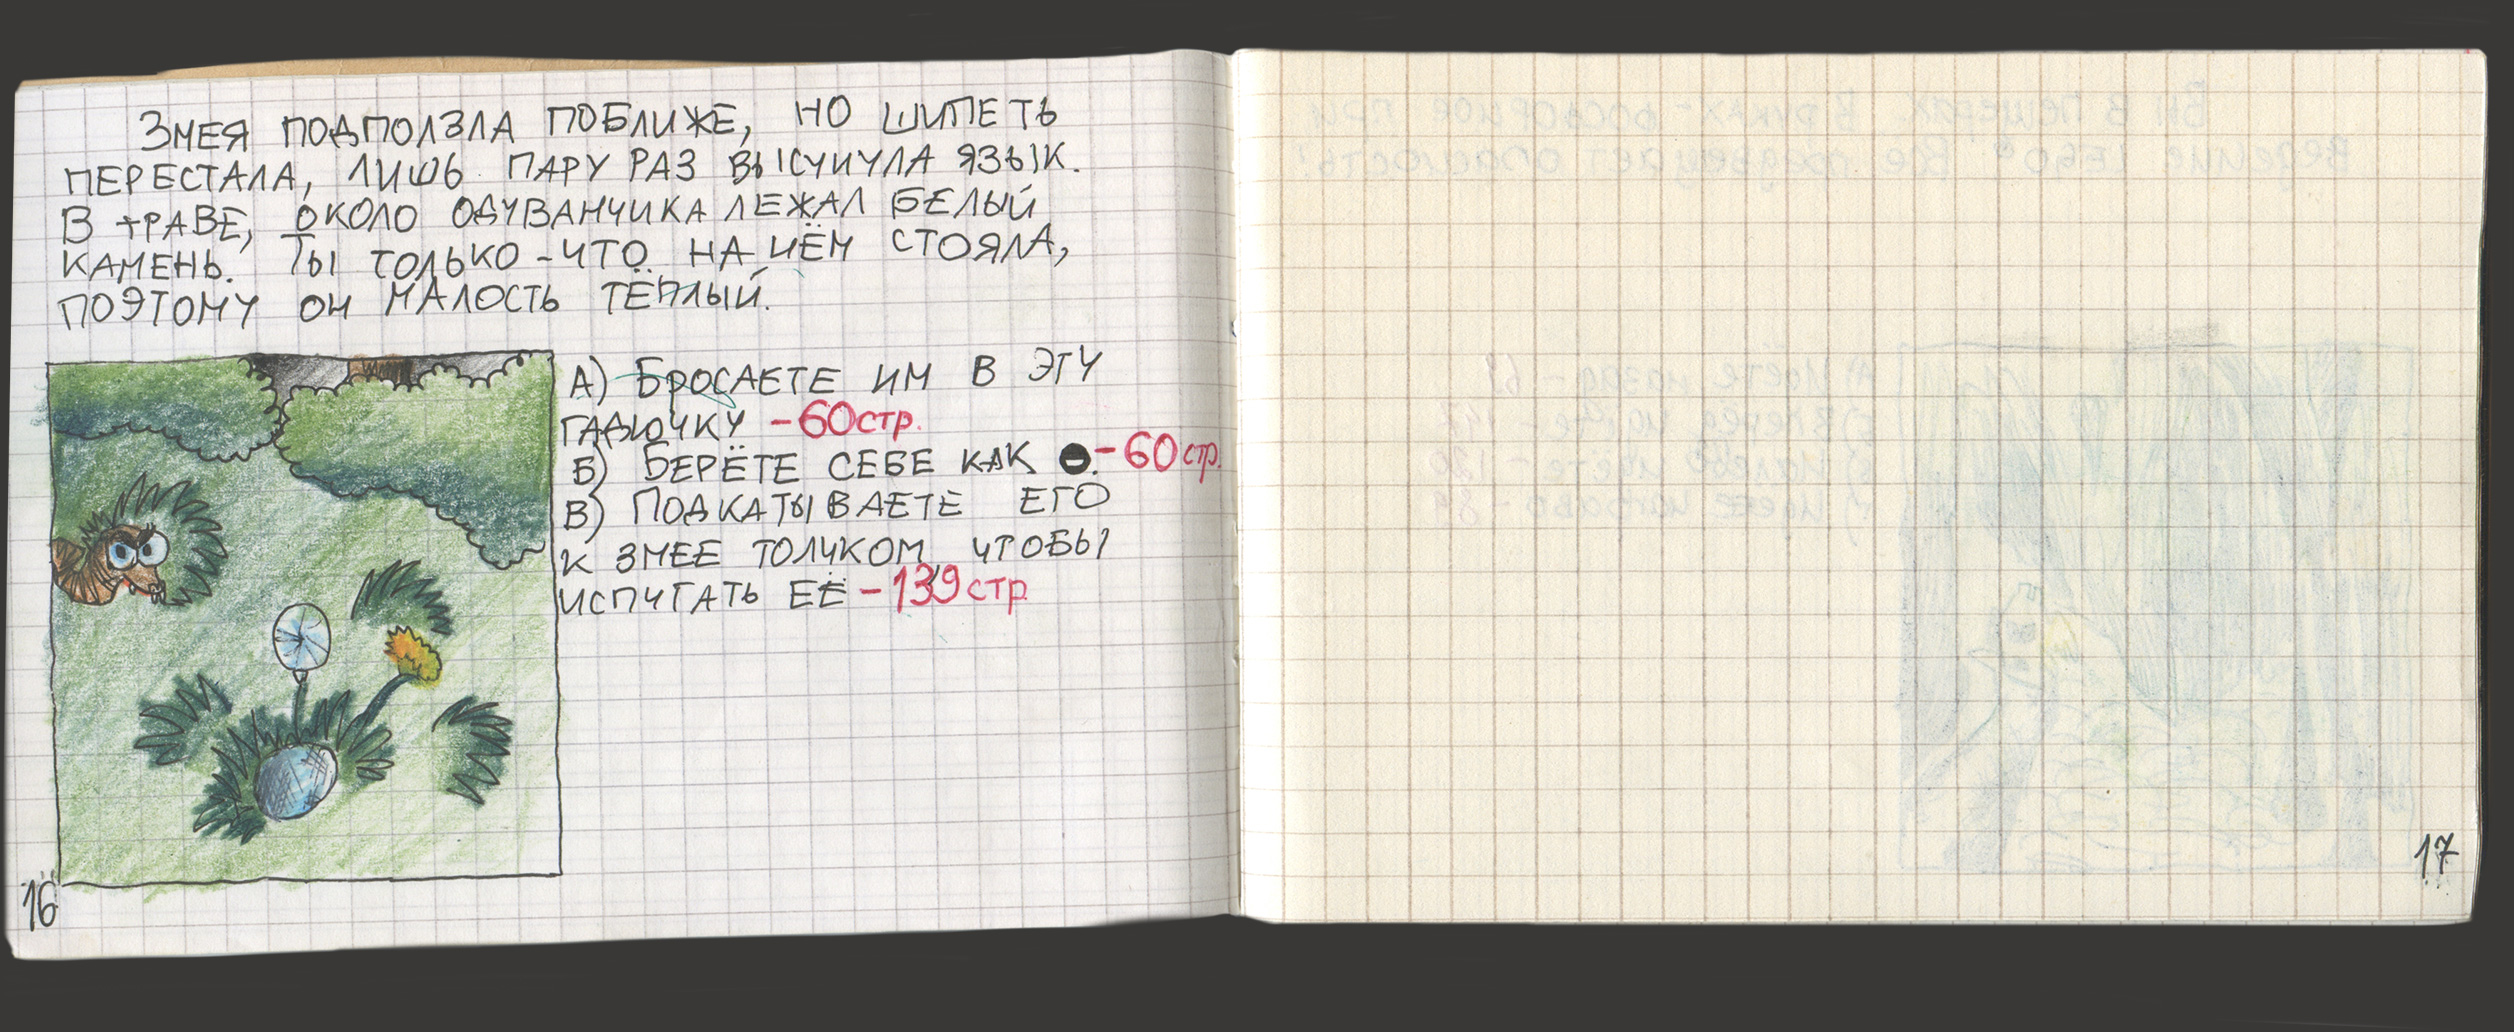 Змея подползла поближе, но шипеть
перестала, лишь пару раз высунула язык.
В траве, около одуванчика лежал белый
камень. Ты только-что на нём стояла,
поэтому он малость тёплый.
А) Бросаете им в эту
гадючку - 60 стр.
Б) Берёте себе как - 60 стр.
В) Подкатываете его
к змее толчком, чтобы
испугать её - 139 стр
16
17